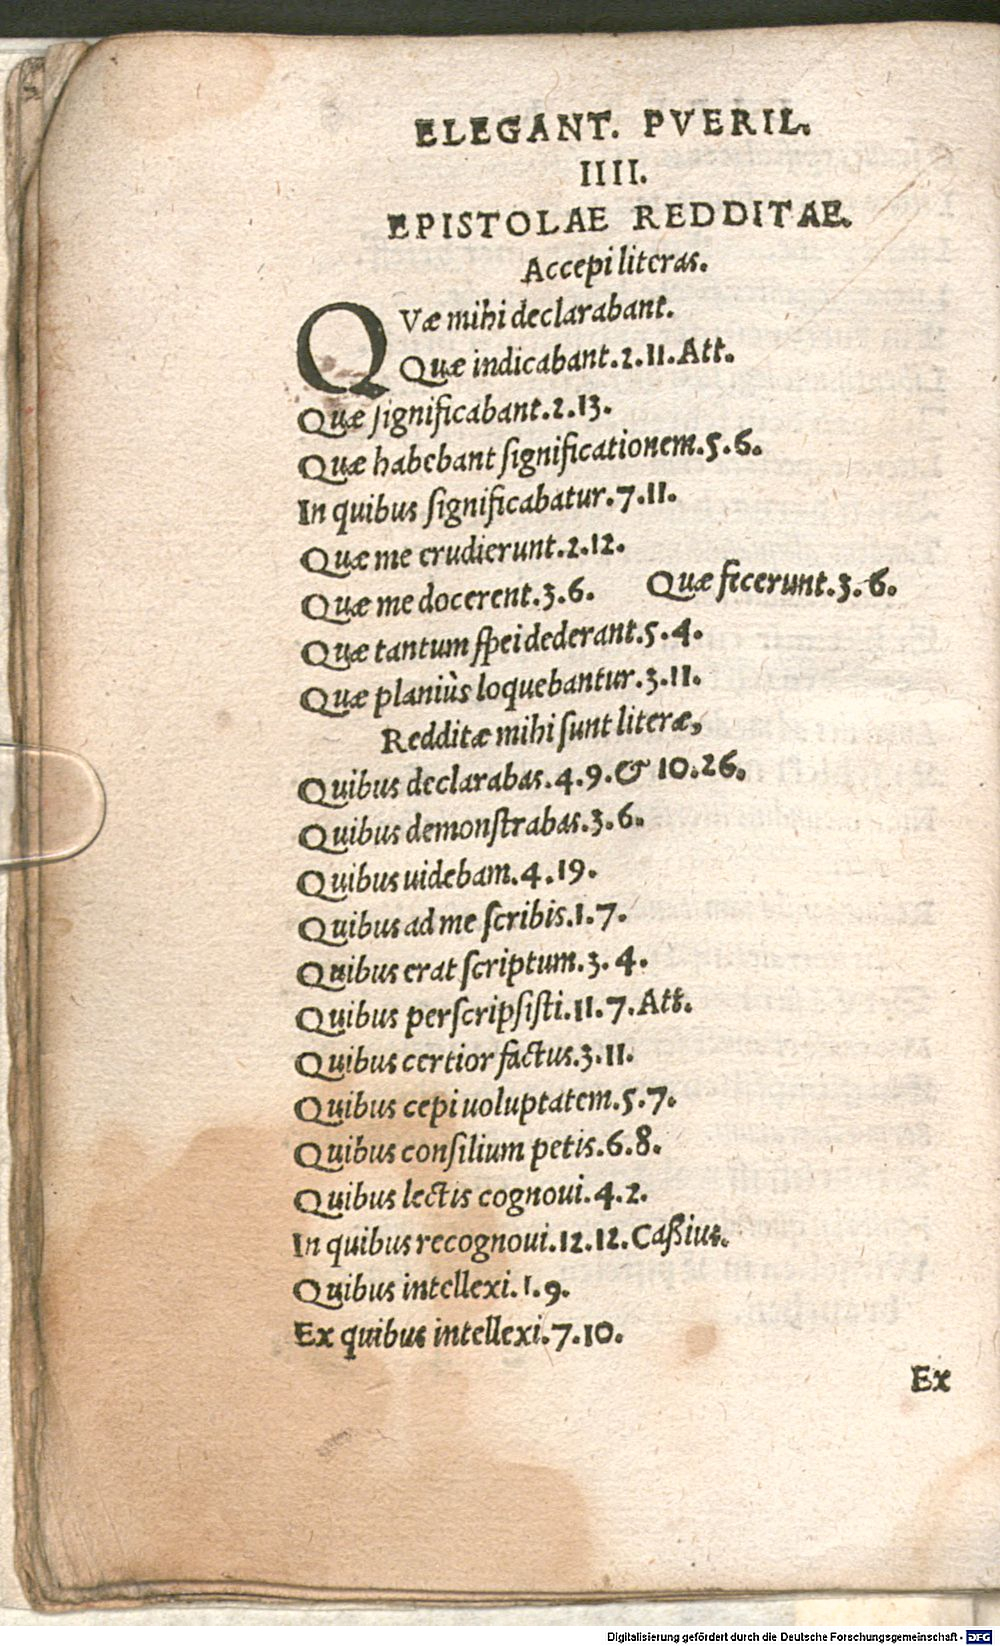 ELEGANT. PVERIL.
IIII.
EPISTOLAE REDDITAE.
Accepi literas.
QVæ mihi declarabant.
Quæ indicabant.2.11.Att.
Quæ ſignificabant.2.13.
Quæ habebant ſignificationem.5.6.
In quibus ſignificabatur.7.11.
Quæ me erudierunt.2.12.
Quæ me docerent.3.6. Quæ fecerunt.3.6.
Quæ tantum ſpei dederant.5.4.
Quæ planiùs loquebantur.3.11.
Redditæ mihi ſunt literæ,
Quibus declarabas.4.9.& 10.26.
Quibus demonſtrabas.3.6.
Quibus uidebam.4.19.
Quibus ad me ſcribis.1.7.
Quibus erat ſcriptum.3.4.
Quibus perſcripſiſti.11.7.Att.
Quibus certior factus.3.11.
Quibus cepi uoluptatem.5.7.
Quibus conſilium petis.6.8.
Quibus lectis cognoui.4.2.
In quibus recognoui.12.12.Caßius.
Quibus intellexi.1.9.
Ex quibus intellexi.7.10.
Ex
Digitalisierung gefördert durch die Deutsche Forschungsgemeinschaft - DFG